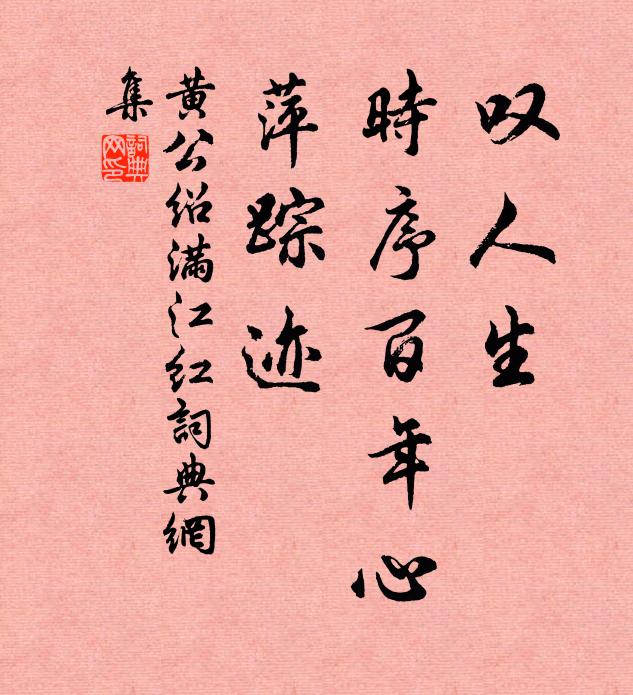 叹人生
時序百年心
萍踪迹
黄公绍满江红詞典網
集
詞典
网印